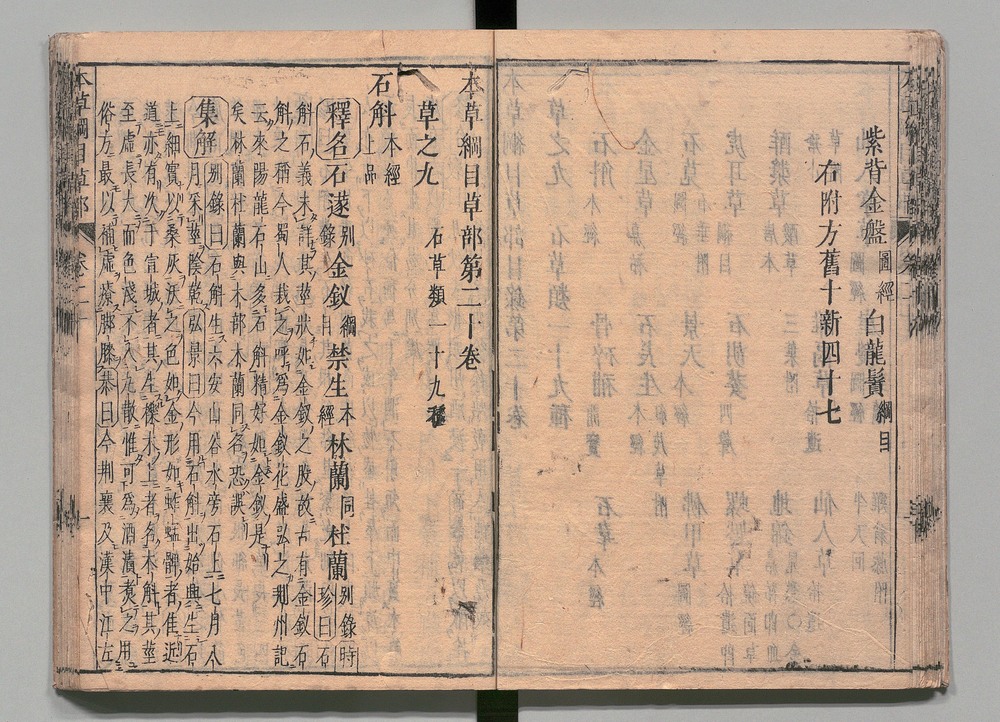 紫背金盤 圖經 白龍鬚 綱目
右附方舊十新四十七
本草綱目草部第二十卷
草之九 石草類一十九種
石斛 本經上品
釋名 石蓫 別錄 金釵 綱目 禁生 本經 林蘭 同 杜蘭 別錄 時珍曰石
斛石義未詳其莖狀如金釵之股故古有金釵石
斛之稱今蜀人栽之呼為金釵花盛弘之荆州記
云來陽龍石山多石斛精好如金釵是
矣林蘭杜蘭與木部木蘭同名恐誤
集解 別錄曰石斛生六安山谷水旁石上七月八
月采莖陰乾 弘景曰今用石斛出始興生石
上細實以桑灰湯沃之色如金形如蚱蜢髀者佳近
道亦有次于宣城者其生櫟木上者名木斛其莖
至虛長大而色淺不入丸散惟可為酒漬煮之用
俗方最以補虛療脚膝 恭曰今荆襄及漢中江左
本草綱目 草部 卷二十